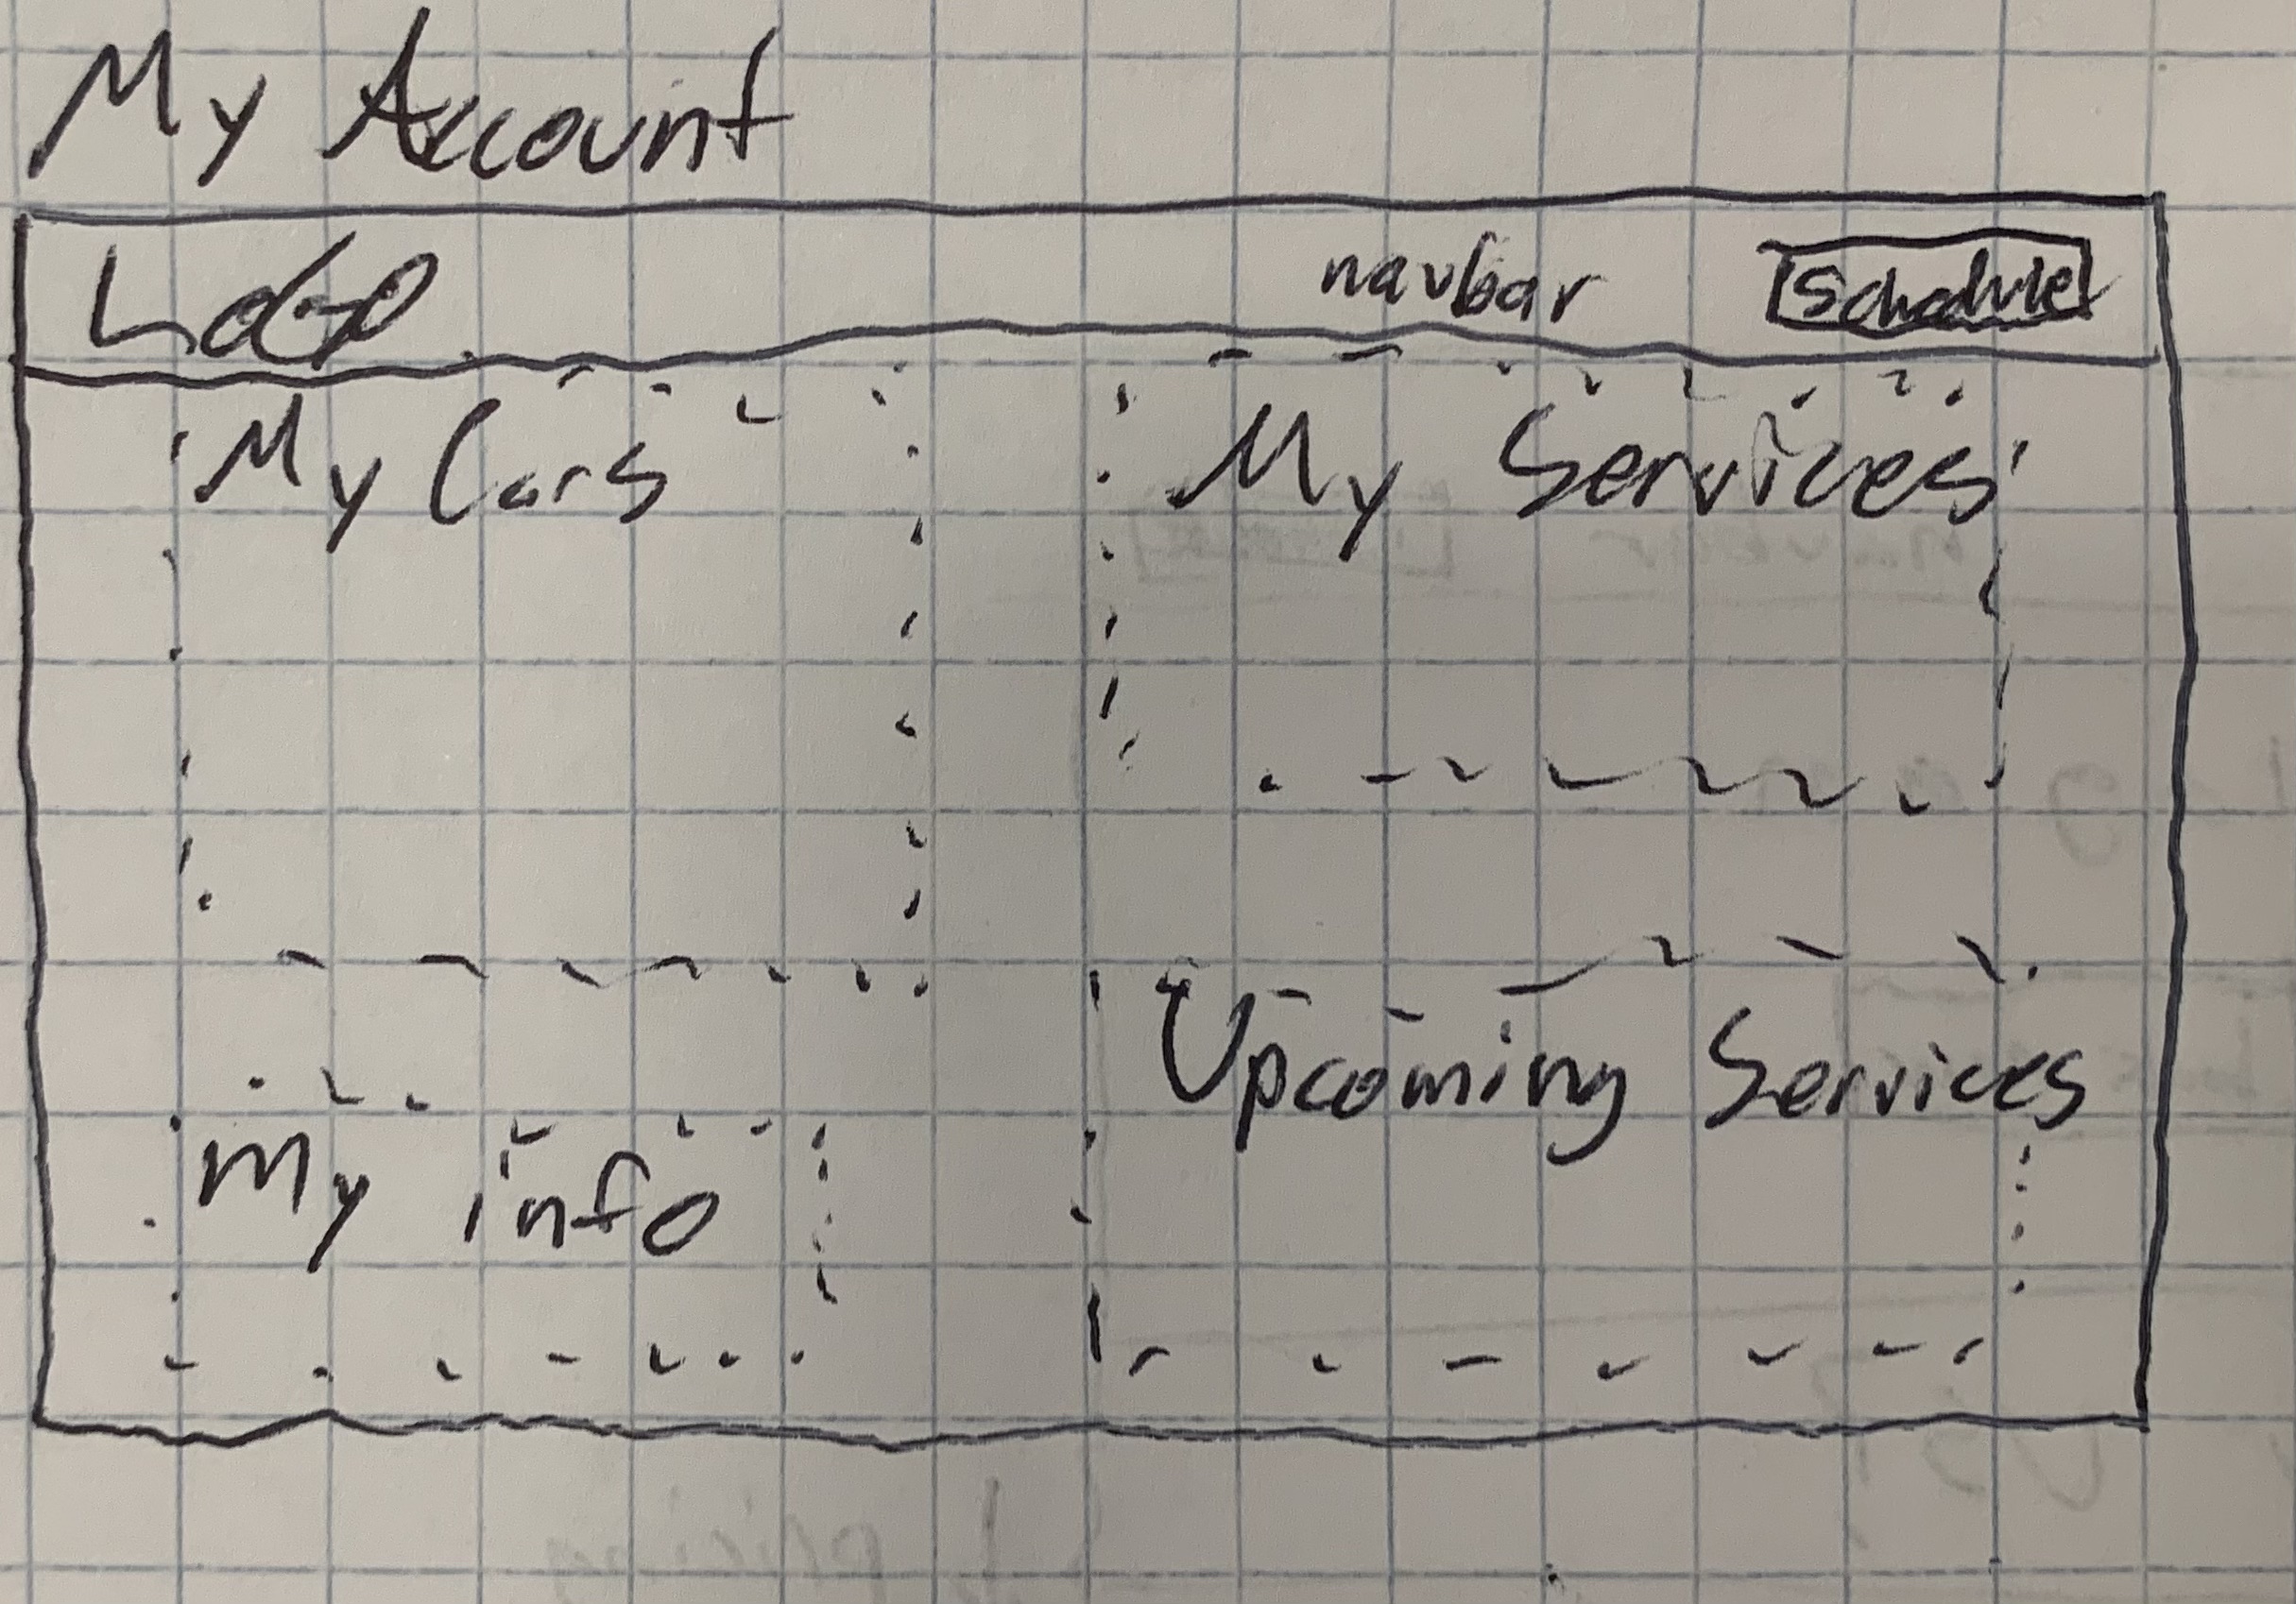 My Account
LOGO navbar Schedule
My Cars
My Services
Upcoming Services
My info
pricing